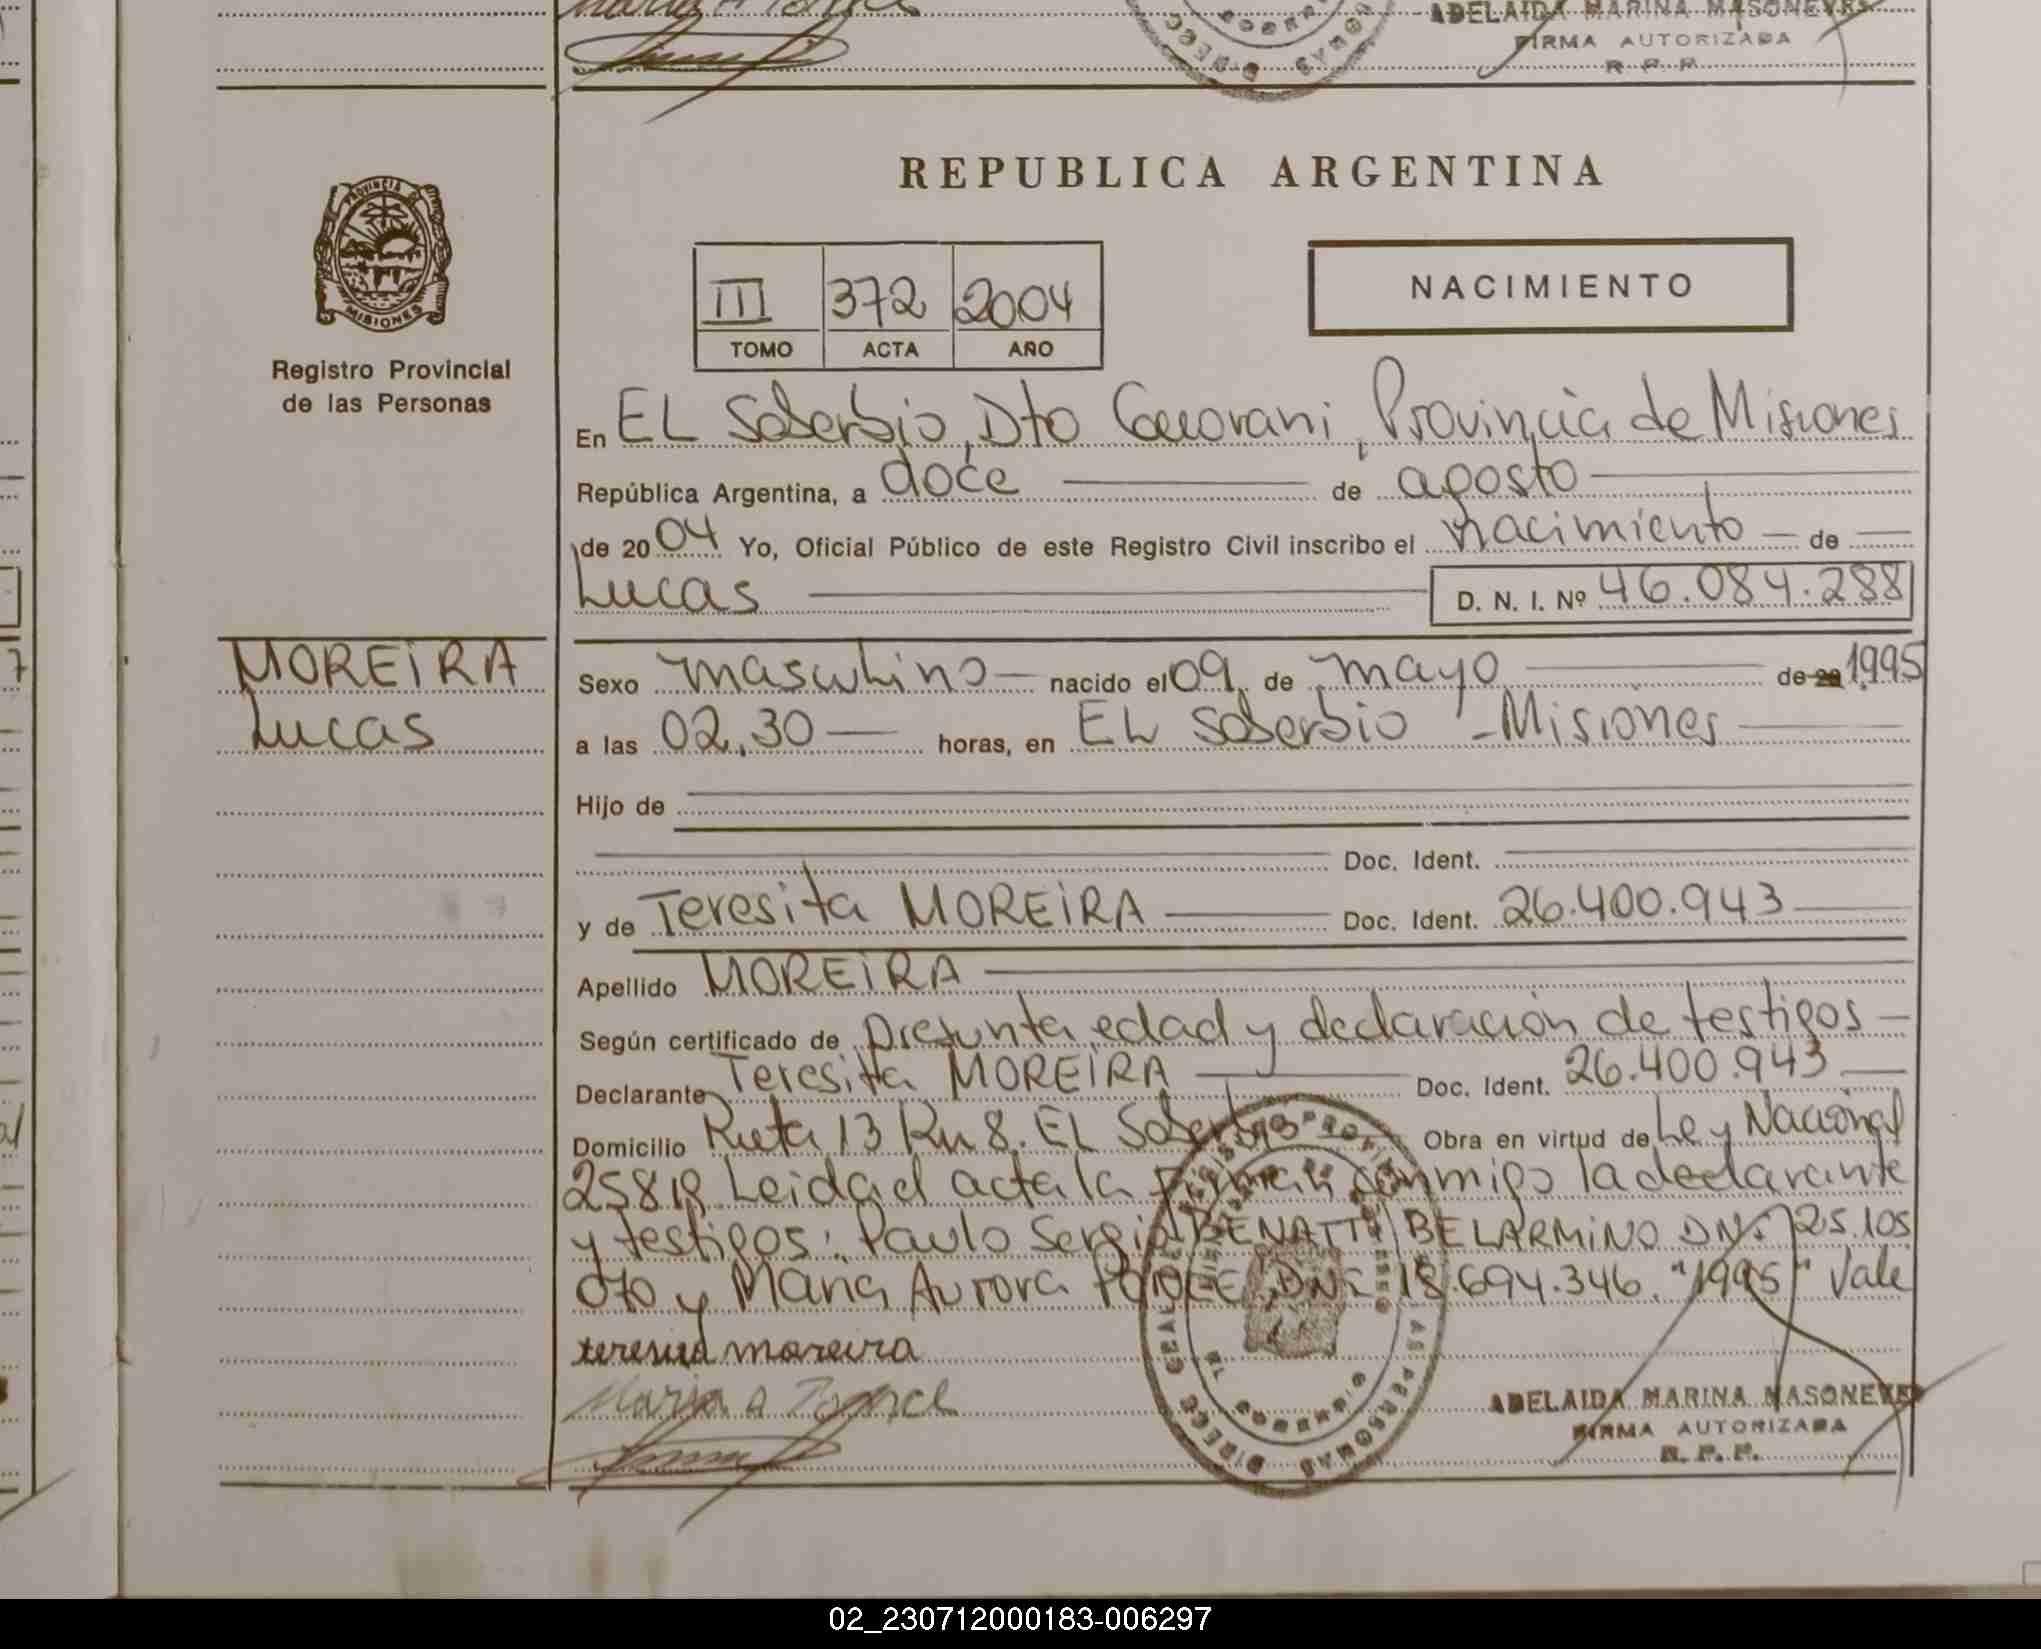 ADELAIDA MARINA MASONEVES
FIRMA AUTORIZADA
R. P. P.
REPUBLICA ARGENTINA
PROVINCIA DE
MISIONES
Registro Provincial
de las Personas
III 372 2004
TOMO ACTA AÑO
NACIMIENTO
En EL Soberbio, Dto Guarani, Provincia de Misiones
República Argentina, a doce de agosto
de 2004 Yo, Oficial Público de este Registro Civil inscribo el nacimiento de
Lucas D. N. I. Nº 46.084.288
MOREIRA
Lucas
Sexo masculino nacido el 09 de mayo de 20 1995
a las 02.30 horas, en EL Soberbio - Misiones
Hijo de
Doc. Ident.
y de Teresita MOREIRA Doc. Ident. 26.400.943
Apellido MOREIRA
Según certificado de Presunta edad y declaración de testigos
Declarante Teresita MOREIRA Doc. Ident. 26.400.943
Domicilio Ruta 13 Km 8. EL Soberbio Obra en virtud de Ley Nacional
25819 Leida el acta la Firman conmigo la declarante
y testigos: Paulo Sergio BENATTI BELARMINO DNI 25.105
070 y Maria Aurora DNI 18.694.346. "1995" Vale
teresita moreira
Maria A
ADELAIDA MARINA MASONEVES
FIRMA AUTORIZADA
R. P. P.
02_230712000183-006297